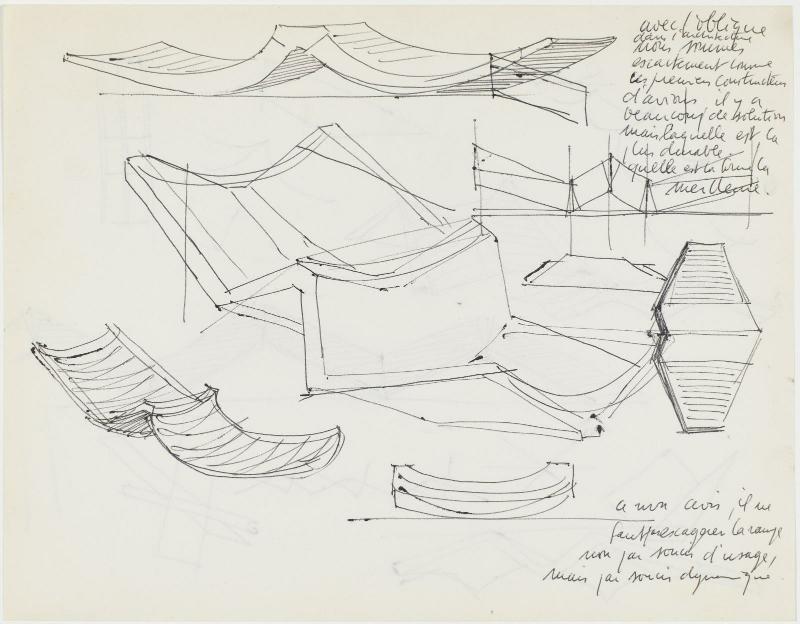 avec l'oblique
dans l'architecture
nous sommes
exactement comme
les premiers constructeurs
d'avions il y a
beaucoup de solutions
mais laquelle est la
plus durable
quelle est la
meilleure.
a mon avis, il ne
faut pas exagérer la rampe
non par soucis d'usage,
mais par soucis dynamique